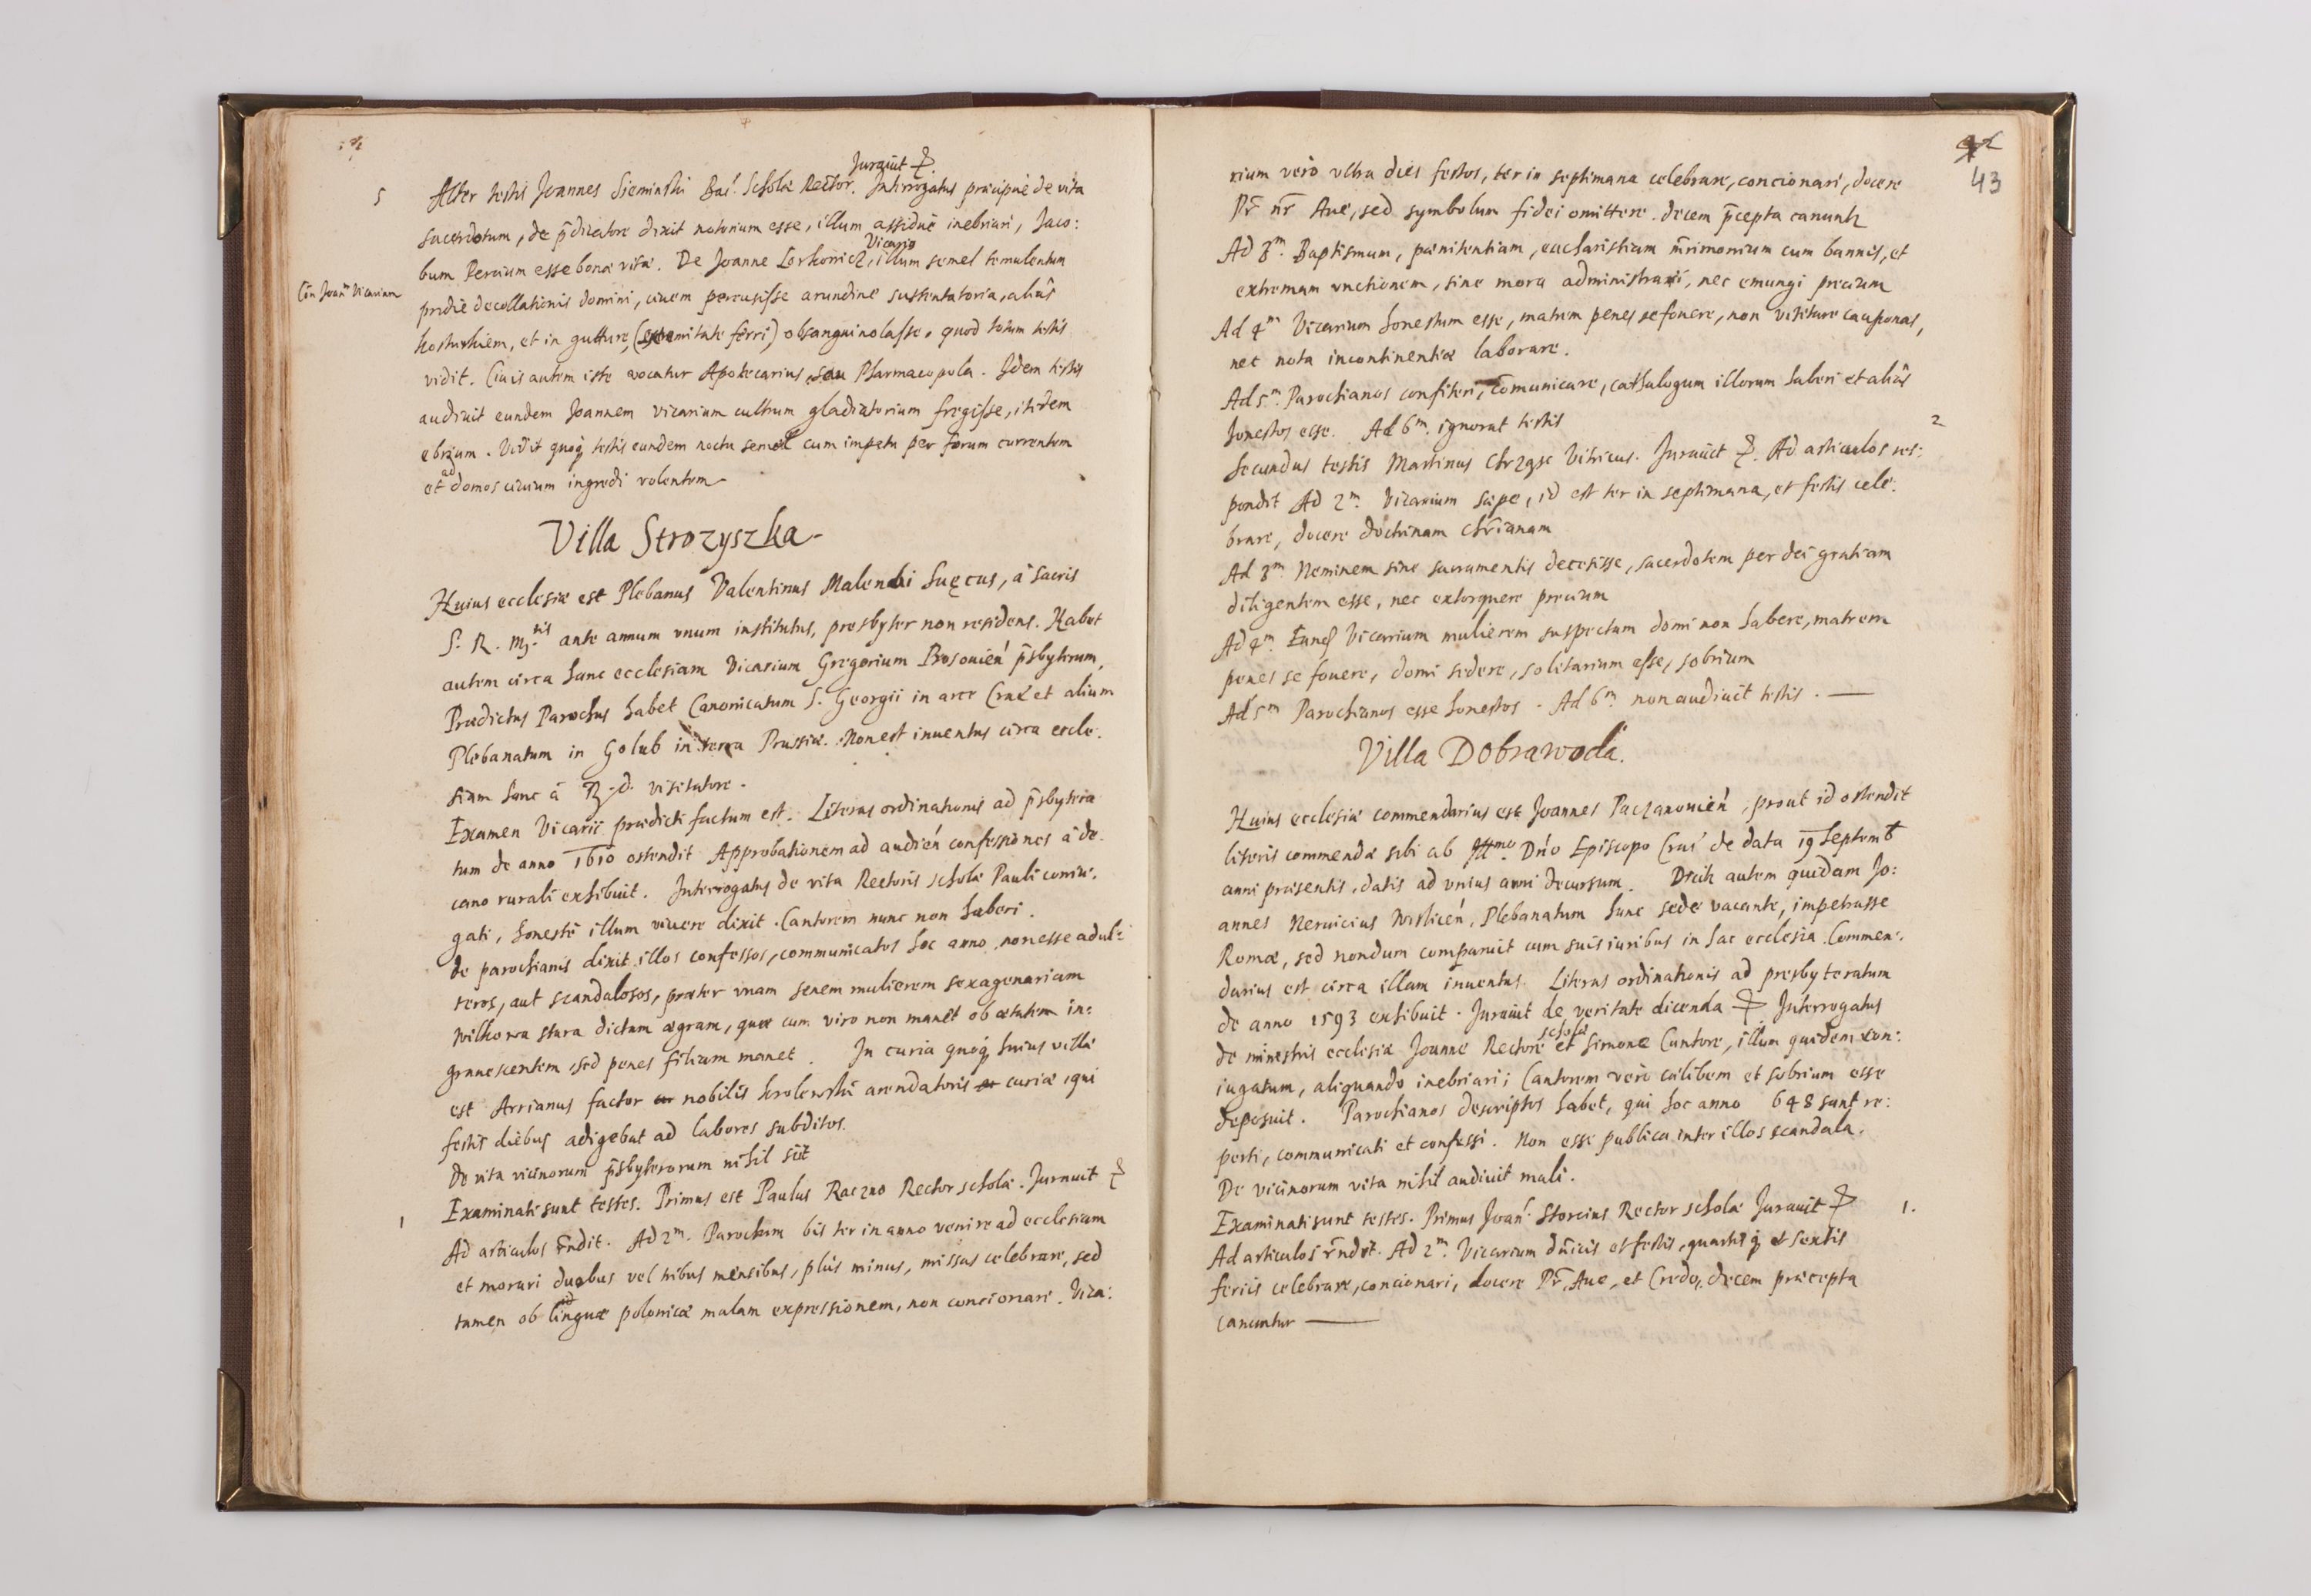 Jurauit
5 Alter testis Joannes Sieminski Bac. Scholæ Rector. Interrogatus præcipuè de vita
sacerdotum, de p̄dicatore dixit notorium esse, illum assiduè inebriari, Jaco:
bum Percium esse bonæ vitæ. De Joanne Lorkowicz, Vicario illum semel temulentum
Con Joan̄ Vicarium
pridie decollationis domini, ciuem percussisse arundine sustentatoria, aliàs
et in gutture, (extremitate ferri) obsanguinolasse, quod totum testis
vidit. Ciuis autem iste vocatur Apotecarius seu Pharmacopola. Idem testis
audiuit eundem Joannem vicarium cultrum gladiatorium fregisse, itidem
ebrium. Vidit quoq testis eundem noctu semel cum impetu per forum currentem
et ad domos ciuium ingredi volentem
Villa Strozyszka
Huius ecclesiæ est Plebanus Valentinus Suęcus, à sacris
S. R. M.tis ante annum vnum institutus, presbyter non residens. Habet
autem circa hanc ecclesiam Vicarium Gregorium p̄sbyterum,
Prædictus Parochus habet Canonicatum S. Georgii in arce Crac̄ et alium
Plebanatum in Golub in terra Prussiæ. Non est inuentus circa eccle:
siam hanc à R. d. visitatore.
Examen Vicarii prædicti factum est. Literas ordinationis ad p̄sbytera
tum de anno 1610 ostendit Approbationem ad audień confessiones à de:
cano rurali exhibuit. Interrogatus de vita Rectoris scholæ Pauli coniu:
gati, honestè illum viuere dixit. Cantorem nunc non haberi.
de parochianis dixit illos confessos, communicatos hoc anno, non esse adul:
teros, aut scandalosos, præter vnam senem mulierem sexagenariam
Wilkowa stara dictam ægram, quæ cum viro non manet ob ætatem in:
grauescentem, sed penes filium manet. In curia quoq huius villæ
est Arrianus factor nobilis Krolewski arendatoris curiæ, qui
festis diebus adigebat ad labores subditos.
De vita vicinorum p̄sbyterorum nihil scit
Examinati sunt testes. Primus est Paulus Raczno Rector scholæ. Jurauit
1 Ad articulos rn̄dit. Ad 2m. Parochum bis ter in anno venire ad ecclesiam
et morari duobus vel tribus mensibus, plus minus, missas celebrare, sed
tamen ob linguæ polonicæ malam expressionem, non concionare. Vica:
42
43
rium verò vltra dies festos, ter in septimana celebrare, concionari, docere
Pr̄ nr̄ Aue, sed symbolum fidei omittere. decem p̄cepta canunt
Ad 3m. Baptismum, pænitentiam, eucharistiam mr̄imonium cum bannis, et
extremam vnctionem, sine mora administrari, nec emungi precium
Ad 4m Vicarium honestum esse, matrem penes se fouere, non visitare cauponas,
nec nota incontinentiæ laborare.
Ad 5m. Parochianos confiteri, com̄unicare, cathalogum illorum haberi et aliàs
honestos esse. Ad 6m. ignorat testis
2
Secundus testis Martinus Vitricus. Jurauit. Ad articulos res:
pondit Ad 2m. Vicarium sæpe, id est ter in septimana, et festis cele:
brare, docere doctrinam chr̄ianam
Ad 3m. Neminem sine sacramentis decessisse, sacerdotem per dei gratiam
diligentem esse, nec extorquere precium
Ad 4m. Eund̄ Vicarium mulierem suspectam domi non habere, matrem
penes se fouere, domi sedere, solitarium esse, sobrium
Ad 5m Parochianos esse honestos. Ad 6m. non audiuit testis.
Villa Dobrawoda.
Huius ecclesiæ commendarius est Joannes Paczanouień, prout id ostendit
literis commendæ sibi ab Illmo. Dn̄o Episcopo Crac̄ de data 19 Septemb
anni præsentis, datis ad vnius anni decursum. Dicit autem quidam Jo:
annes Neruicius Plebanatum hunc sede vacante, impetrasse
Romæ, sed nondum comparuit cum suis iuribus in hac ecclesia. Commen:
darius est circa illam inuentus. Literas ordinationis ad presbyteratum
de anno 1593 exhibuit. Jurauit de veritate dicenda Interrogatus
de ministris ecclesiæ Joanne Rectore scholæ et Simone Cantore, illum quidem con:
iugatum, aliquando inebriari; Cantorem verò cælibem et sobrium esse
deposuit. Parochianos descriptos habet, qui hoc anno 648 sunt re:
perti, communicati et confessi. Non esse publica inter illos scandala.
De vicinorum vita nihil audiuit mali.
Examinati sunt testes. Primus Joan̄. Storcius Rector scholæ Jurauit 1.
Ad articulos rn̄dit. Ad 2m. Vicarium dn̄icis et festis, quartis q et sextis
feriis celebrare, concionari, docere Pr̄, Aue, et Credo, decem præcepta
canuntur